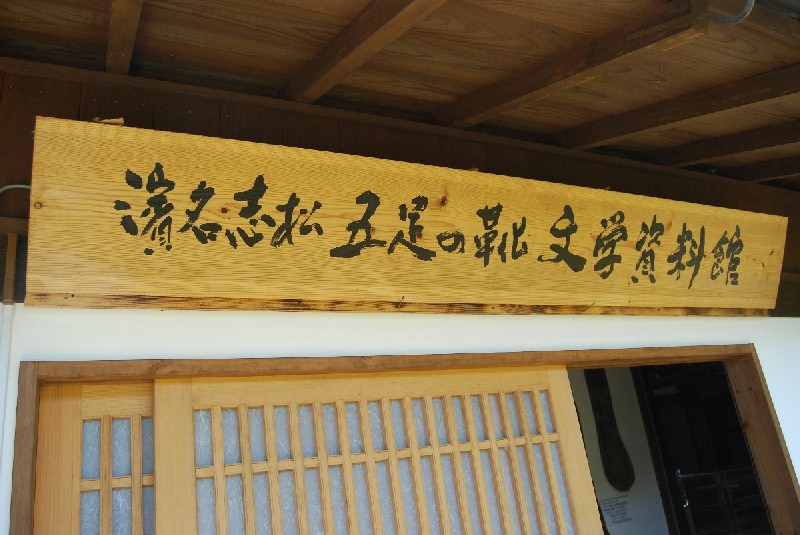 濱名志松 五足の靴 文学資料館